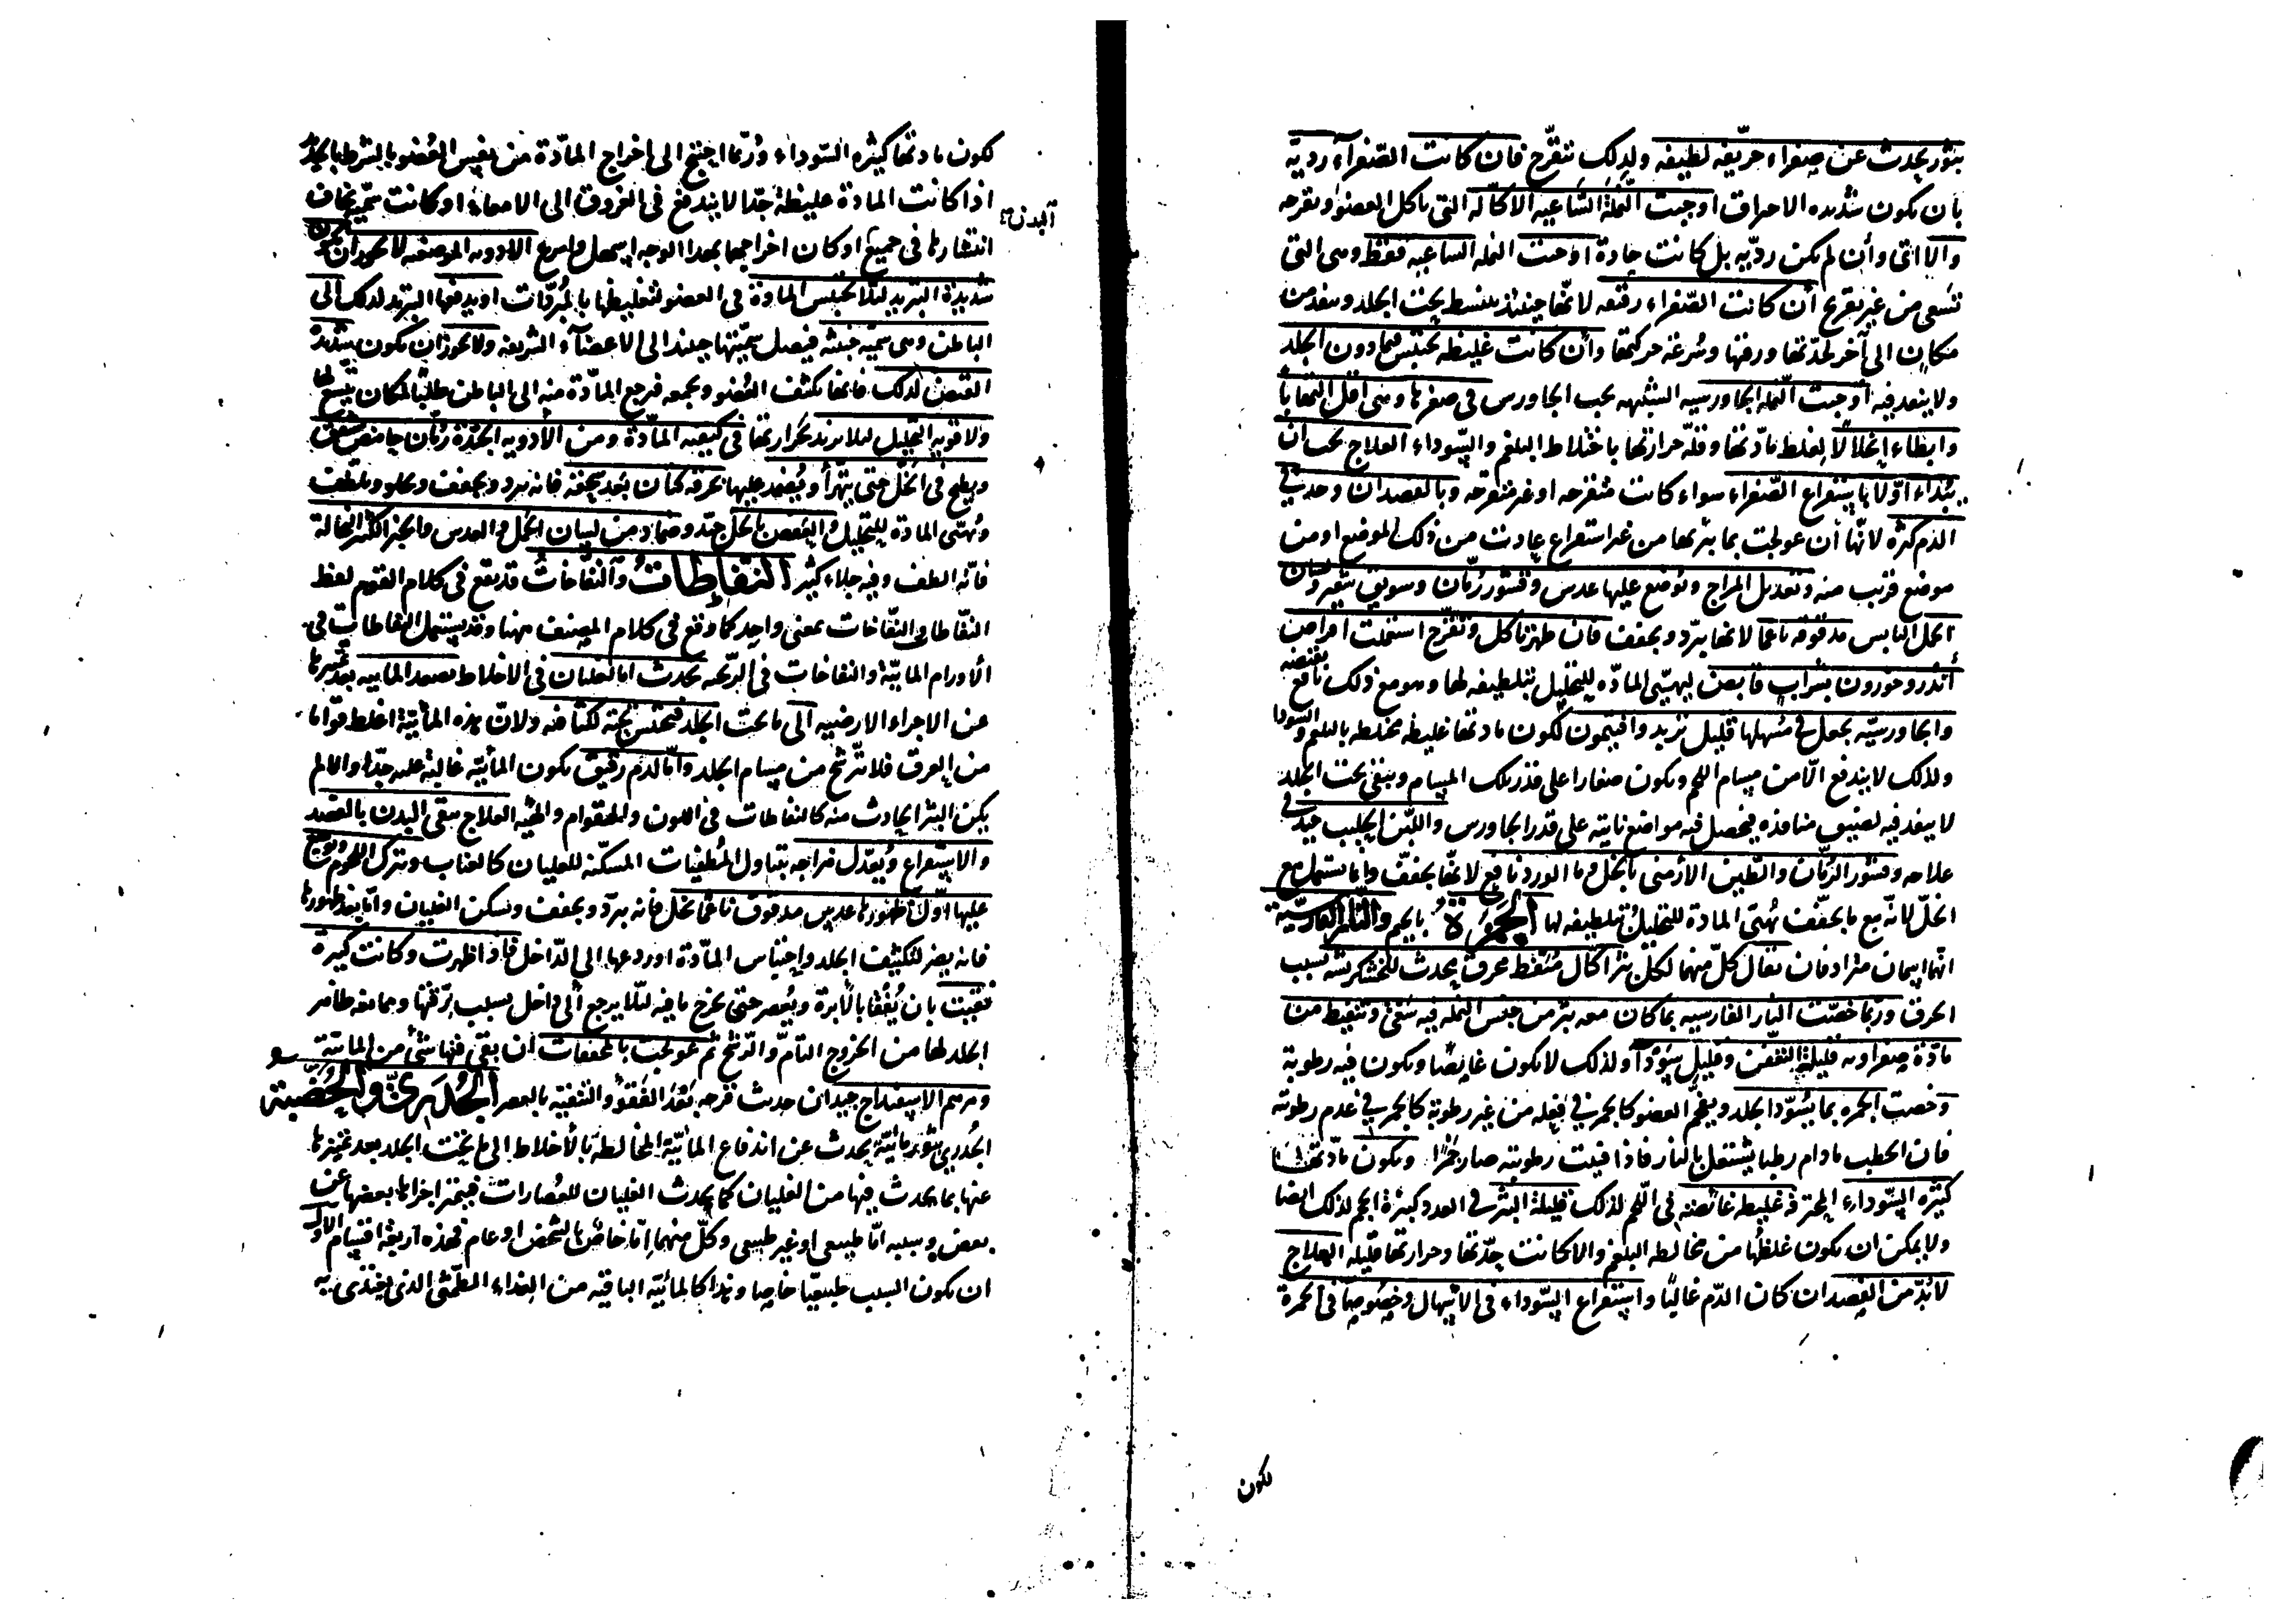 بثور يحدث عن صفراء حريفه لطيفه ولذلك تتقرح فان كانت الصفراء رديه
بان يكون شديده الاحراق اوجبت النملة الساعيه الاكاله التى تاكل العضو وتقرحه
والا اى وأن لم يكن رديه بل كانت حادة اوجبت النمله الساعيه فقط وهى التى
تسعى من غير تقرح أن كانت الصفراء رقيقه لانها حينئذ ينبسط تحت الجلد وينفذ من
مكان الى آخر لحدتها ورقتها وسرعة حركتها وأن كانت غليظه تحتبس فيما دون الجلد
ولا ينفذ فيه أوجبت النمله الجاورسيه الشبيهه بحب الجاورس فى صغرها وهى اقل التهابا
وابطاء انحلالا لغلظ مادتها وقلة حرارتها باختلاط البلغم والسوداء العلاج يجب ان
يبتداء اولا باستفراغ الصفراء سواء كانت متقرحه او غير متقرحه وبالفصد ان وجد فى
الدم كثرة لانها أن عولجت بما يبرعها من غير استفراغ عادت من ذلك الموضع او من
موضع قريب منه وتعديل المزاج وتوضع عليها عدس وقشور رمان وسويق شعير ولسان
الحمل اليابس مدقوقه ناعما لانها يبرد ويجفف فان ظهر تاكل وتقرح استعملت اقراص
أندروخورون بشراب قابض ليهيى الماده للتحليل بتلطيفه لها وهو مع ذلك نافع بقبضه
والجاورسيه يجعل فى مسهلها قليل تربد وافتيمون لكون مادتها غليظه مختلطه بالبلغم والسودا
ولذلك لا يندفع الا من مسام اللحم ويكون صغارا على قدر تلك المسام ويبقى تحت الجلد
لا ينفذ فيه لضيق منافذه فيحصل فيه مواضع ناتيه على قدر الجاورس واللبن الحليب جيد فى
علاجه وقشور الرمان والطين الأرمنى بالخل وما الورد نافع لانها يجفف وانما يستعمل مع
الخل لانه مع ما يجفف يهيى المادة للتحليل بتلطيفه لها الجمرة بالجيم والنار الفارسية
انهما اسمان مترادفان يقال كل منهما لكل بثر اكال منفط محرق يحدث للخشكريشه بسبب
الحرق وربما خصت النار الفارسيه بما كان معه بثر من جنس النمله فيه سعى وتنفيط من
مادة صفراويه قليلة التعفن وقليل سودا ولذلك لا يكون غايصا ويكون فيه رطوبة
وخصت الجمره بما يسود الجلد ويفحم العضو كالجمر فى فعله من غير رطوبة كالجمر فى عدم رطوبته
فان الحطب مادام رطبا يشتعل بالنار فاذا فنيت رطوبته صار جمرا ويكون مادتها
كثيرة السوداء المحترقه غليظه غائصه فى اللحم لذلك قليلة البثر فى العدد كبيرة الحجم لذلك ايضا
ولا يمكن ان يكون غلظها من مخالطه البلغم والا كانت حدتها وحرارتها قليله العلاج
لابد من الفصد ان كان الدم غالبا واستفراغ السوداء فى الاسهال وخصوصا فى الجمرة
لكون
لكون مادتها كثيره السوداء وربما احتيج الى اخراج المادة من نفس العضو بالشرط بالحديد
اذا كانت المادة غليظة جدا لا يندفع فى العروق الى الامعاء او كانت سمية يخاف
انتشارها فى جميع البدن او كان اخراجها بهذا الوجه اسهل واسرع الادويه الموضعيه لا يجوز ان يكون
شديدة التبريد لئلا يحتبس المادة فى العضو لتغليظها بالمبردات او يدفعها التبريد لذلك الى
الباطن وهى سميه خبيثه فيصل سميتها حينئذ الى الاعضاء الشريفه ولا يجوز ان يكون شديدة
القبض لذلك فانها تكثف العضو ويجمعه فيرجع المادة منه الى الباطن طلبا لمكان يتسع لها
ولا قويه التحليل لئلا يزيد بحرارتها فى كيفيه المادة ومن الأدويه الجيدة رمان حامض يشق
ويطبخ فى الخل حتى يتهرأ ويضمد عليها بخرقه كتان بعد سحقه فانه يبرد ويجفف ويجلو ويلطف
ويهيى المادة للتحليل والقبض بالخل جيد وضماد من لسان الحمل والعدس والخبز الكثير النخالة
فانه الطف وفيه جلاء كثير النفاطات والنفاخات قد يقع فى كلام القوم لفظ
النفاطات والنفاخات بمعنى واحد كما وقع فى كلام المصنف ههنا وقد يستعمل النفاطات فى
الأورام المائية والنفاخات فى الريحيه يحدث اما لغليان فى الاخلاط يصعد المائيه بعد تميزها
عن الاجزاء الارضيه الى ما تحت الجلد فتحتبس تحته لكثافته ولان هذه المائية اغلظ قواما
من العرق فلا يترشح من مسام الجلد واما لدم رقيق يكون المائيه غالبة عليه جدا والا لم
يكن البثر الحادث منه كالنفاطات فى اللون والقوام والهيئه العلاج ينقى البدن بالفصد
والاستفراغ ويعدل مزاجه بتناول المطفيات المسكنه للغليان كالعناب وتترك اللحوم ويوضع
عليها اول ظهورها عدس مدقوق ناعما بخل فانه يبرد ويجفف ويسكن الغليان واما بعد ظهورها
فانه يضر لتكثيف الجلد واحتباس المادة او ردعها الى الداخل فاذا ظهرت وكانت كبيرة
نقبت بان يفقأ بالابرة ويعصر حتى يخرج ما فيه لئلا يرجع الى داخل بسبب رقتها وممانعه ظاهر
الجلد لها من الخروج التام والترشح ثم عولجت بالمجففات ان بقى فيها شئ من المائية
ومرهم الاسفيداج جيد ان حدث قرحه بعد الفقؤ والتنقيه بالعصر الجدرى والحصبة
الجدرى بثور مائية يحدث عن اندفاع المائية المخالطة بالأخلاط الى ما تحت الجلد بعد تميزها
عنها بما يحدث فيها من الغليان كما يحدث الغليان للعصارات فيتميز اجزاءها بعضها عن
بعض وسببه اما طبيعى او غير طبيعى وكل منهما اما خاص بالشخص او عام فهذه اربعة اقسام الاول
ان يكون السبب طبيعيا خاصا وهذا كالمائية الباقيه من الغذاء الطمثى الذى يغتذى به